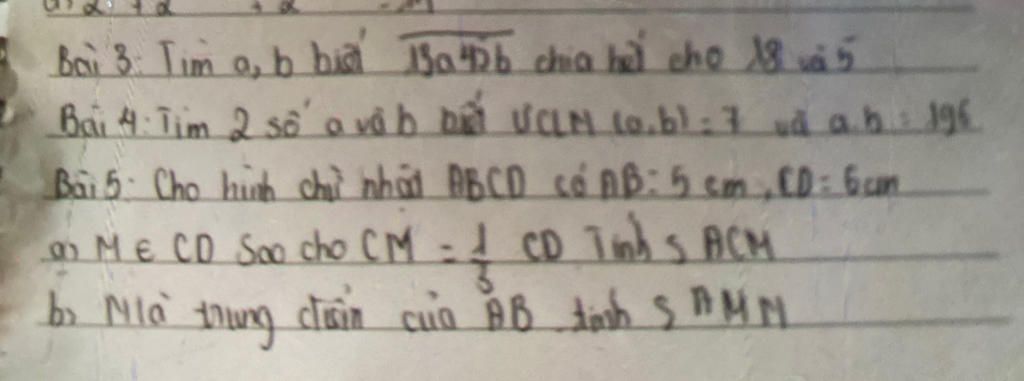 Bài 3: Tìm a, b biết 13a42b chia hết cho 18 và 5
Bài 4: Tìm 2 số a và b biết ƯCLN (a,b) = 7 và a.b = 196
Bài 5: Cho hình chữ nhật ABCD có AB = 5 cm, CD = 6cm
a) M ∈ CD Sao cho CM = 1/3 CD Tính S ACM
b) N là trung điểm của AB tính S AMN